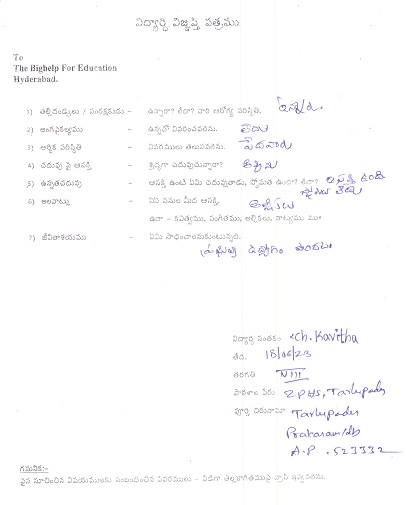 విద్యార్థి విజ్ఞప్తి పత్రము
To
The Bighelp For Education
Hyderabad.
1) తల్లిదండ్రులు / సంరక్షకుడు - ఉన్నారా? లేదా? వారి ఆరోగ్య పరిస్థితి. ఉన్నారు.
2) అంగవైకల్యము - ఉన్నచో వివరించవలెను. లేదు
3) ఆర్థిక పరిస్థితి - వివరములు తెలుపవలెను. పేదవారు
4) చదువు పై ఆసక్తి - శ్రద్ధగా చదువుచున్నారా?
5) ఉన్నతచదువు - ఆసక్తి ఉంటే ఏమి చదువుతాడు, స్తోమత ఉందా? లేదా? ఆసక్తి ఉంది
లేదు
6) అలవాట్లు - ఏ ఏ పనుల మీద ఆసక్తి.
ఉదా - కవిత్వము, సంగీతము, అల్లికలు, నాట్యము మొ॥
7) జీవితాశయము - ఏమి సాధించాలనుకుంటున్నది.
ఉద్యోగం పొందుట
విద్యార్థి సంతకం Ch. Kavitha
తేది. 18/06/23
తరగతి VIII
పాఠశాల పేరు ZPHS, Tarlupadu
పూర్తి చిరునామా Tarlupadu
Prakasam/dt
A.P. 523332
గమనిక:-
పైన సూచించిన విషయములకు సంబంధించిన వివరములు - విడిగా తెల్లకాగితముపై వ్రాసి ఇవ్వవలెను.